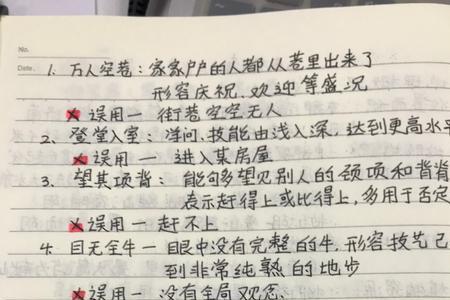 No.
Date.
1. 万人空巷：家家户户的人都从巷里出来了
形容庆祝、欢迎等盛况
✗ 误用一 街巷空空无人
2、登堂入室：学问、技能由浅入深，达到更高水平
✗ 误用一 进入某房屋
3、望其项背：能够多望见别人的颈项和背脊
表示赶得上或比得上，多用于否定
✗ 误用一 赶不上
4. 目无全牛一 眼中没有完整的牛，形容技艺已
到非常纯熟的地步
✗ 误用一 没有全局观念、